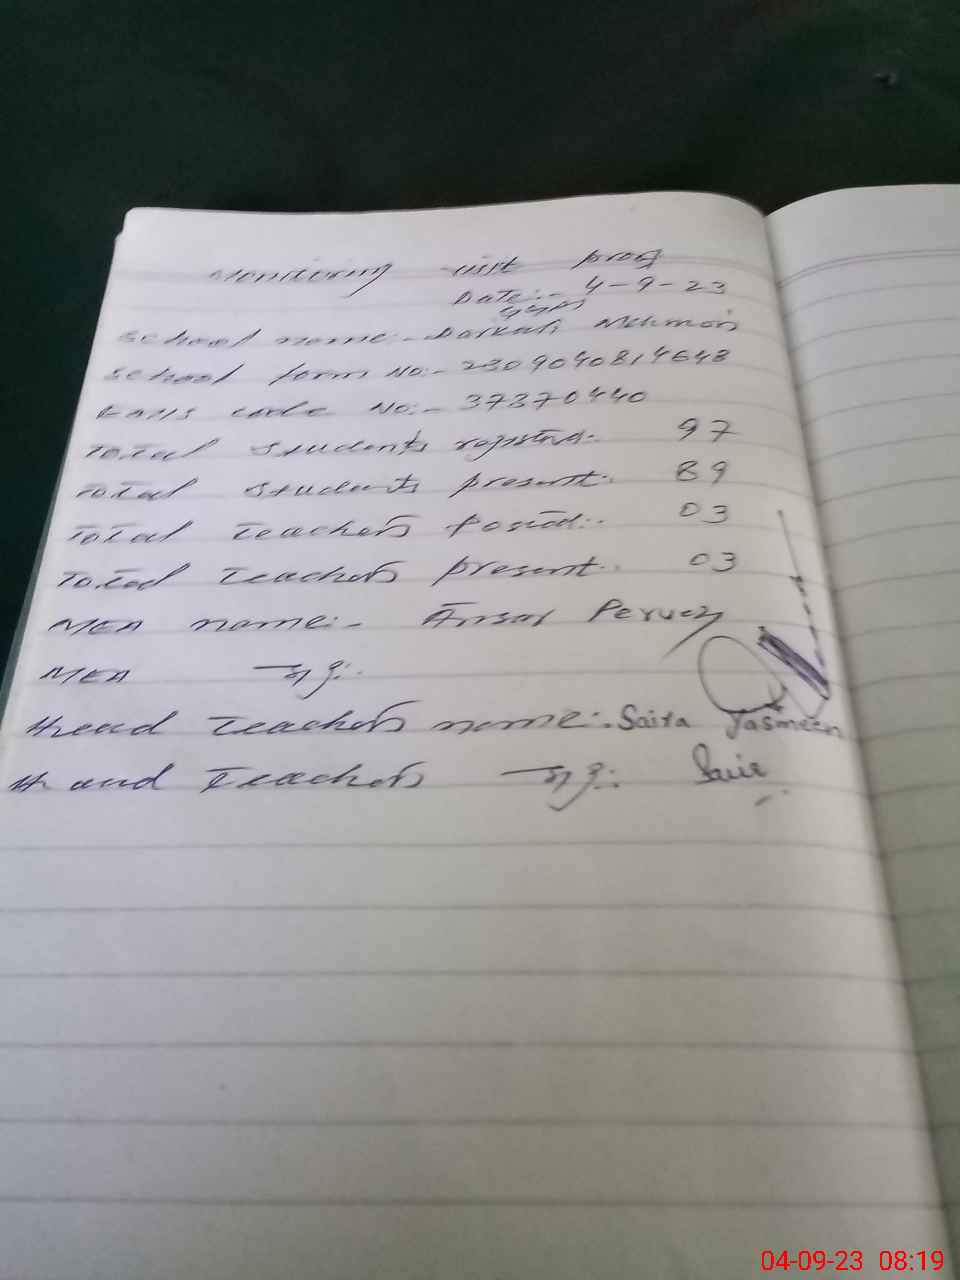 Monitoring visit proof
Date:- 4-9-23
GGPS
School name:- Darkali Mehmon
School form No:- 2309040814648
EMIS code No:- 37370440
Total students registred:- 97
Total students present:- 89
Total Teachers posted:- 03
Total Teachers present:- 03
MEA name:- Ansar Pervez
MEA sig:-
Head Teachers name:- Saira Yasmeen
Head Teachers sig:- Saira
04-09-23 08:19